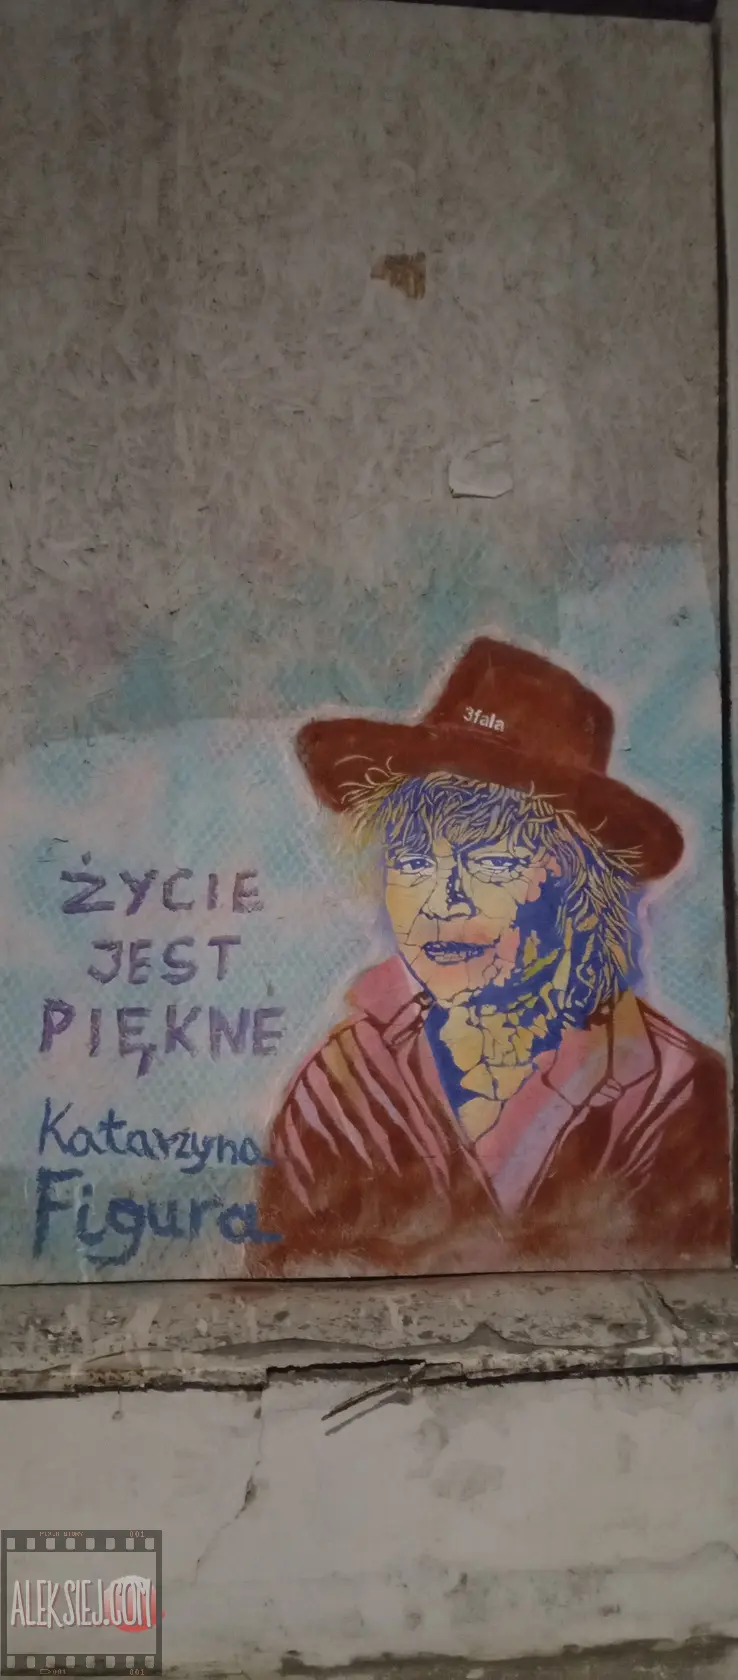 3fala
ŻYCIE
JEST
PIĘKNE
Katarzyna
Figura
ALEKSIEJ.COM